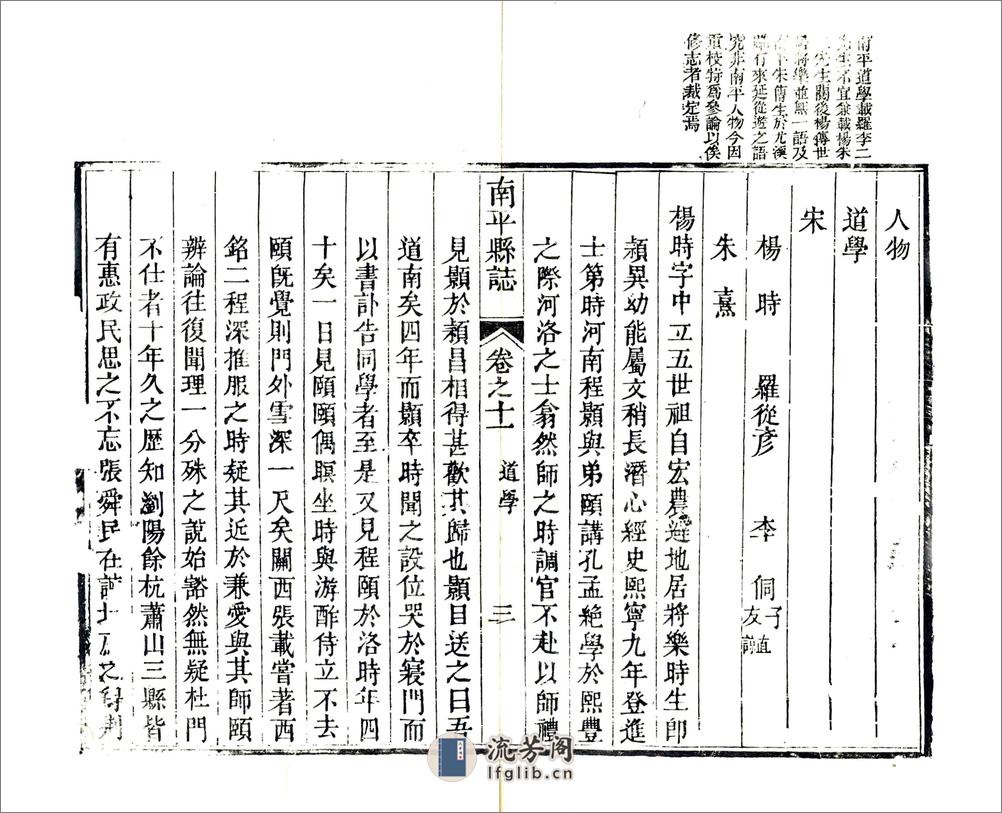 南平道學載羅李二
先生不宜兼載楊朱
先生關後楊傳世
居將樂並無一語及
朱傳生於尤溪
有來延從遊之語
究非南平人物今因
重校特為參論以俟
修志者裁定焉
人物
道學
宋
楊時 羅從彥 李侗 子友直 友諒
朱熹
楊時字中立五世祖自宏農避地居將樂時生即
穎異幼能屬文稍長潛心經史熙寧九年登進
士第時河南程顥與弟頤講孔孟絕學於熙豐
之際河洛之士翕然師之時調官不赴以師禮
見顥於潁昌相得甚歡其歸也顥目送之曰吾
道南矣四年而顥卒時聞之設位哭於寢門而
以書訃告同學者至是又見程頤於洛時年四
十矣一日見頤頤偶瞑坐時與游酢侍立不去
頤既覺則門外雪深一尺矣關西張載嘗著西
銘二程深推服之時疑其近於兼愛與其師頤
辨論往復聞理一分殊之說始豁然無疑杜門
不仕者十年久之歷知瀏陽餘杭蕭山三縣皆
有惠政民思之不忘張舜民在諫
南平縣誌 卷之十一 道學 三
流芳閣
lfglib.cn